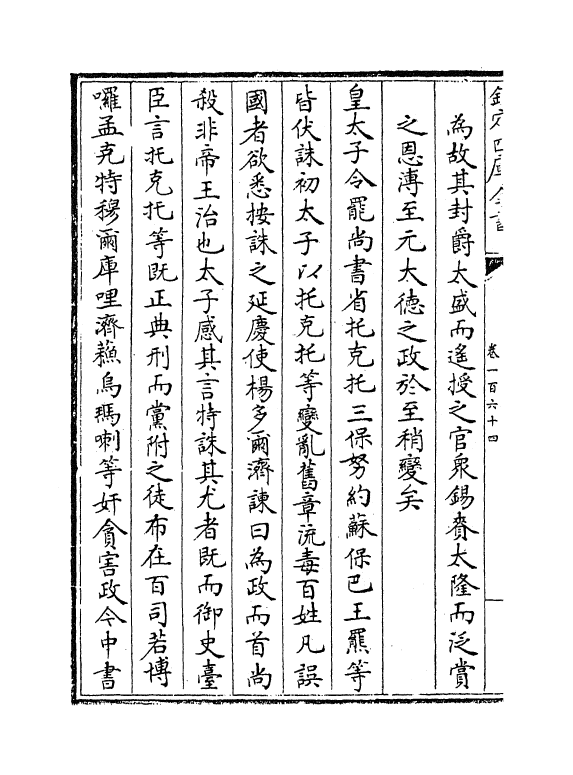 欽定四庫全書
卷一百六十四
為故其封爵太盛而遙授之官衆錫賚太隆而泛賞
之恩溥至元大德之政於至稍變矣
皇太子令罷尚書省托克托三保努約蘇保巴王羆等
皆伏誅初太子以托克托等變亂舊章流毒百姓凡誤
國者欲悉按誅之延慶使楊多爾濟諫曰為政而首尚
殺非帝王治也太子感其言特誅其尤者既而御史臺
臣言托克托等既正典刑而黨附之徒布在百司若博
囉孟克特穆爾庫哩濟蘓烏瑪喇等奸貪害政令中書